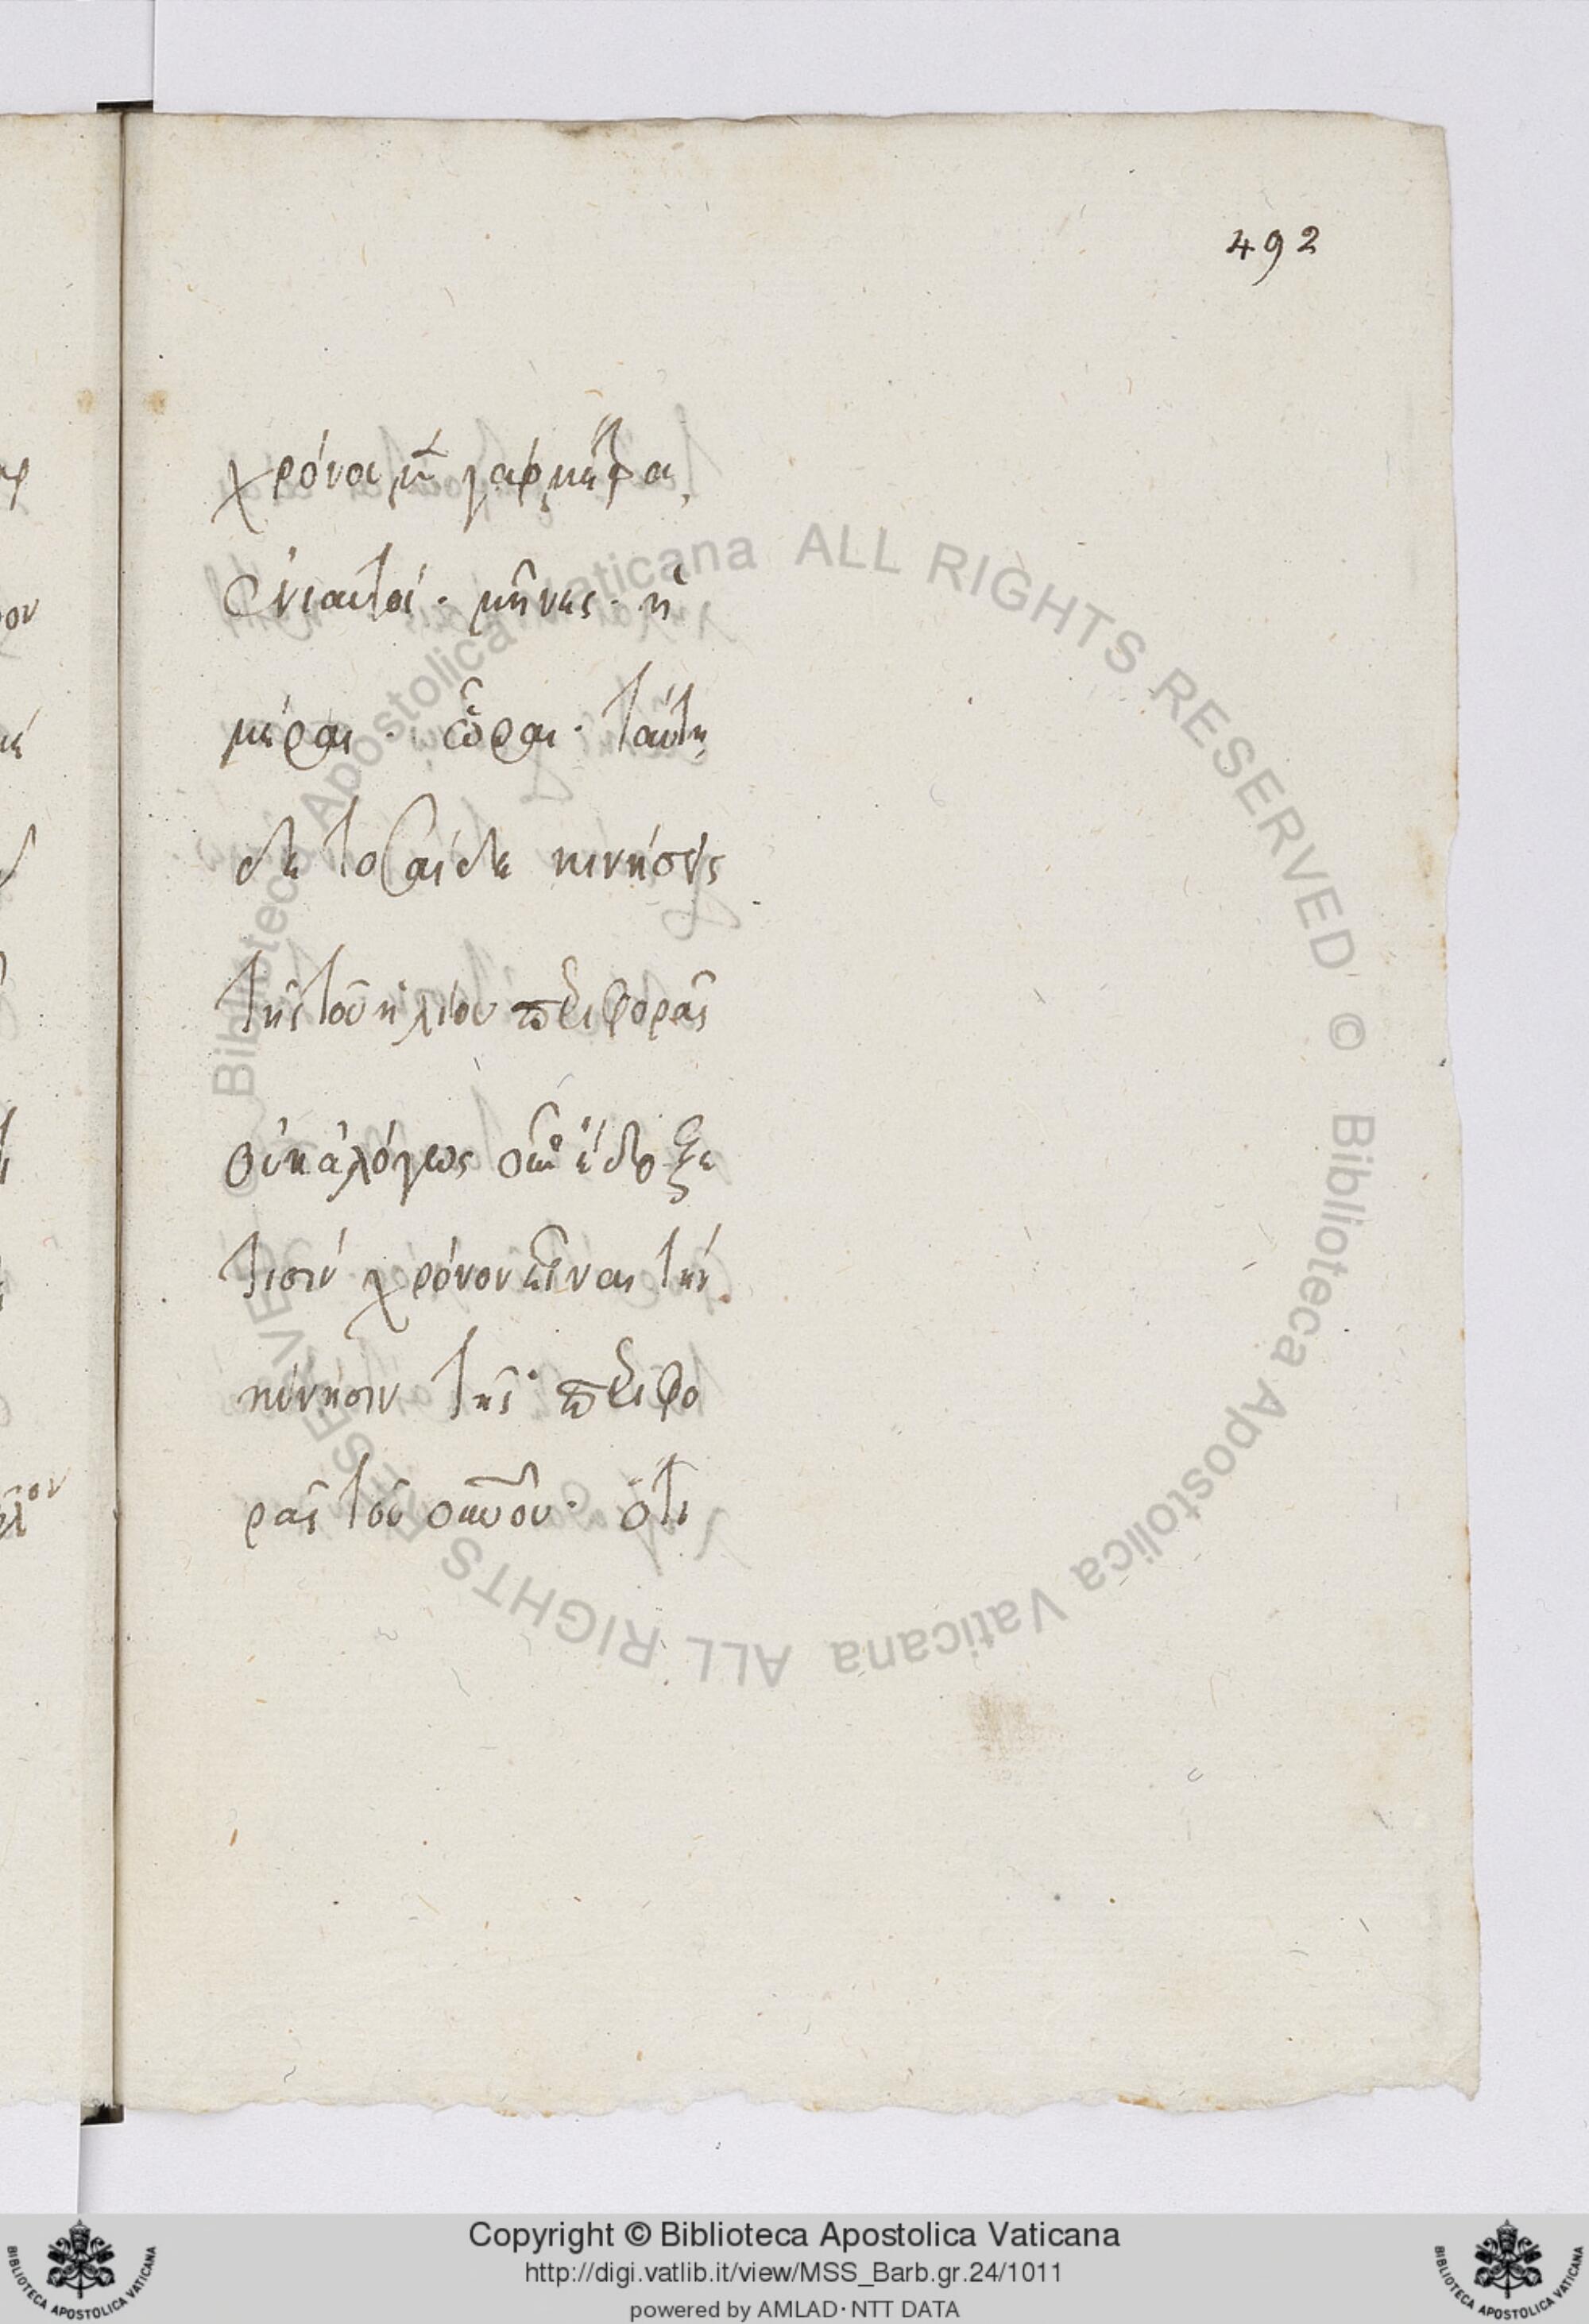 492
χρόνοι
ἐνιαυτοί · μῆνες · ἡ
μέραι · ὧραι · ταύτη
δε το αίδε κινήσεις
τῆς τοῦ ἡλίου περιφορᾶς
οὐκ ἀλόγως ἔδοξε
τισὶν χρόνον εἶναι τὴν
κίνησιν τῆς περιφο
ρᾶς τοῦ · ὅτι
Biblioteca Apostolica Vaticana ALL RIGHTS RESERVED © Biblioteca Apostolica Vaticana ALL RIGHTS RESERVED ©
Copyright © Biblioteca Apostolica Vaticana
http://digi.vatlib.it/view/MSS_Barb.gr.24/1011
powered by AMLAD · NTT DATA
BIBLIOTECA APOSTOLICA VATICANA
BIBLIOTECA APOSTOLICA VATICANA